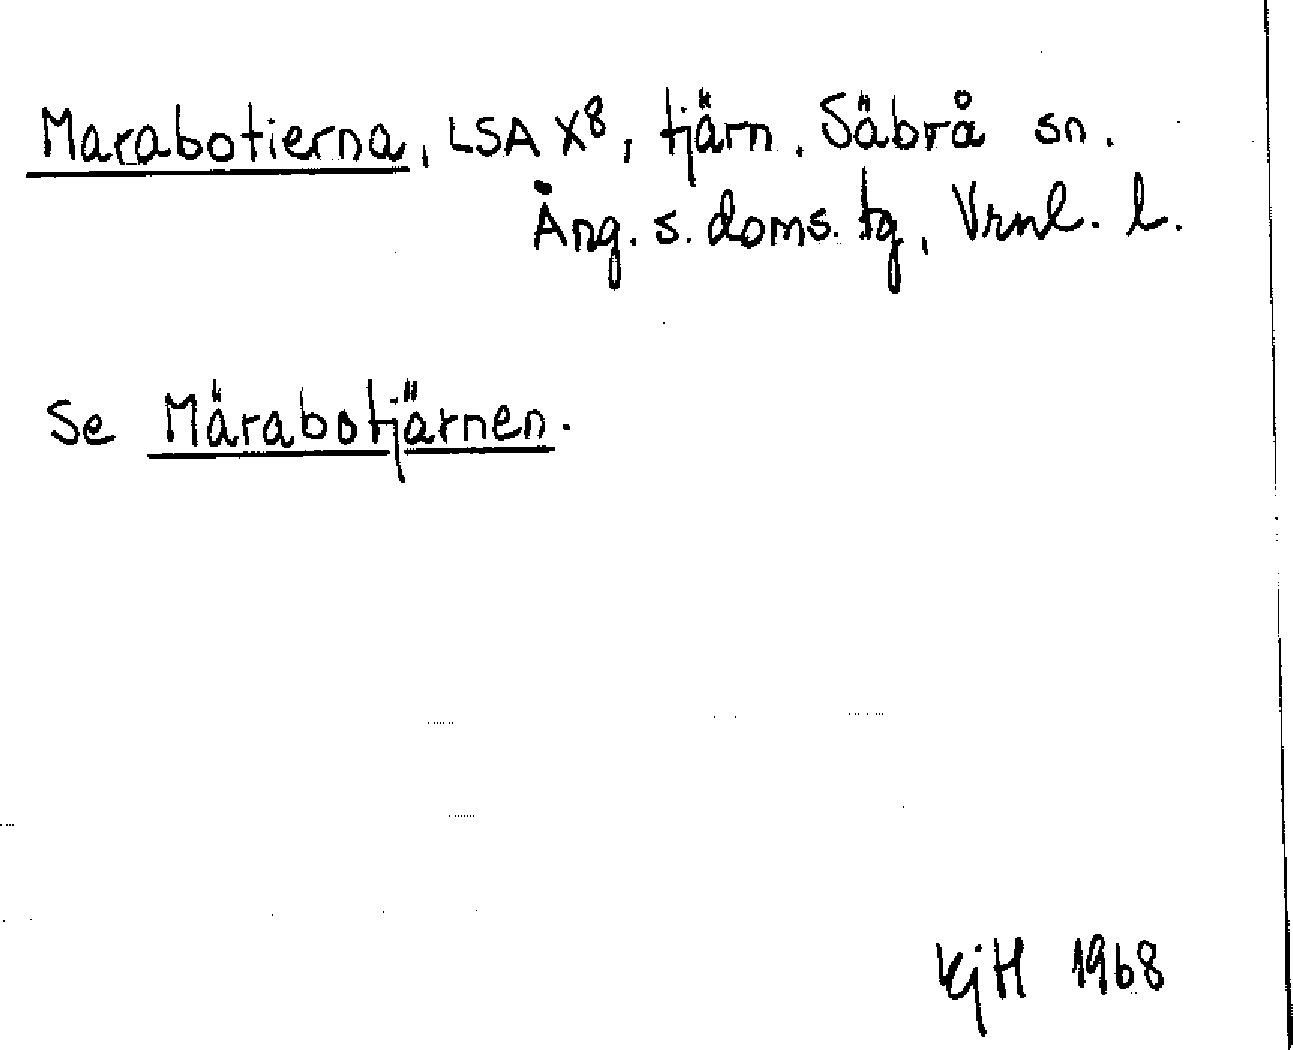 Marabotierna, LSA X8, tjärn. Säbrå sn.
Ång. s. doms. tg, Vrnl. l.
Se Märabotjärnen.
KjH 1968